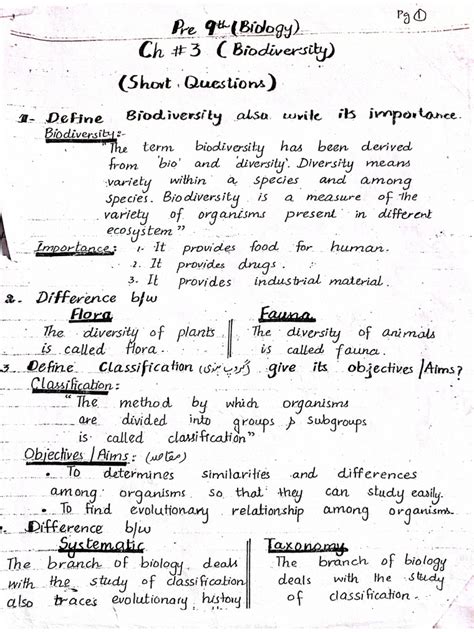 Pg ①
Pre 9th (Biology)
Ch # 3 ( Biodiversity)
(Short Questions)
1- Define Biodiversity also write its importance.
Biodiversity:-
"The term biodiversity has been derived
from 'bio' and 'diversity'. Diversity means
variety within a species and among
species. Biodiversity is a measure of the
variety of organisms present in different
ecosystem"
Importance: 1. It provides food for human.
2. It provides drugs.
3. It provides industrial material.
2. Difference b/w
Flora Fauna
The diversity of plants The diversity of animals
is called flora. is called fauna.
3. Define Classification (گروہ بندی) give its objectives /Aims?
Classification:
"The method by which organisms
are divided into groups & subgroups
is called classification"
Objectives / Aims: (مقاصد)
• To determines similarities and differences
among organisms so that they can study easily.
• To find evolutionary relationship among organisms.
Difference b/w
Systematic Taxonomy
The branch of biology deals The branch of biology
with the study of classification deals with the study
also traces evolutionary history of classification.